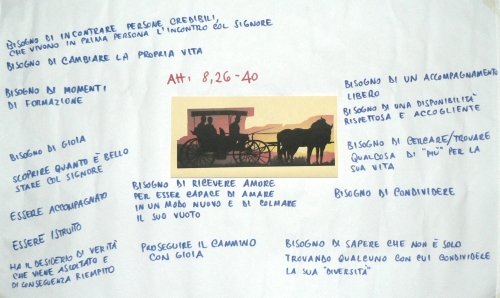 BISOGNO DI INCONTRARE PERSONE CREDIBILI,
CHE VIVONO IN PRIMA PERSONA L'INCONTRO COL SIGNORE
BISOGNO DI CAMBIARE LA PROPRIA VITA
BISOGNO DI MOMENTI
DI FORMAZIONE
Atti 8,26-40
BISOGNO DI UN ACCOMPAGNAMENTO
LIBERO
BISOGNO DI UNA DISPONIBILITÀ
RISPETTOSA E ACCOGLIENTE
BISOGNO DI CERCARE/TROVARE
QUALCOSA DI "PIÙ" PER LA
SUA VITA
BISOGNO DI GIOIA
SCOPRIRE QUANTO È BELLO
STARE COL SIGNORE
ESSERE ACCOMPAGNATO
ESSERE ISTRUITO
HA IL DESIDERIO DI VERITÀ
CHE VIENE ASCOLTATO E
DI CONSEGUENZA RIEMPITO
BISOGNO DI RICEVERE AMORE
PER ESSER CAPACE DI AMARE
IN UN MODO NUOVO E DI COLMARE
IL SUO VUOTO
PROSEGUIRE IL CAMMINO
CON GIOIA
BISOGNO DI CONDIVIDERE
BISOGNO DI SAPERE CHE NON È SOLO
TROVANDO QUALCUNO CON CUI CONDIVIDERE
LA SUA "DIVERSITÀ"